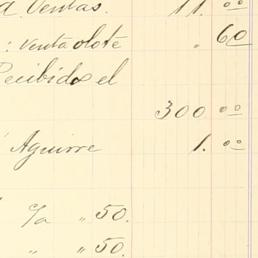 a. Ventas. 11. 00
: Venta olote " 60
Recibido el
300 00
Aguirre 1. 00
c/a " 50.
" " 50.